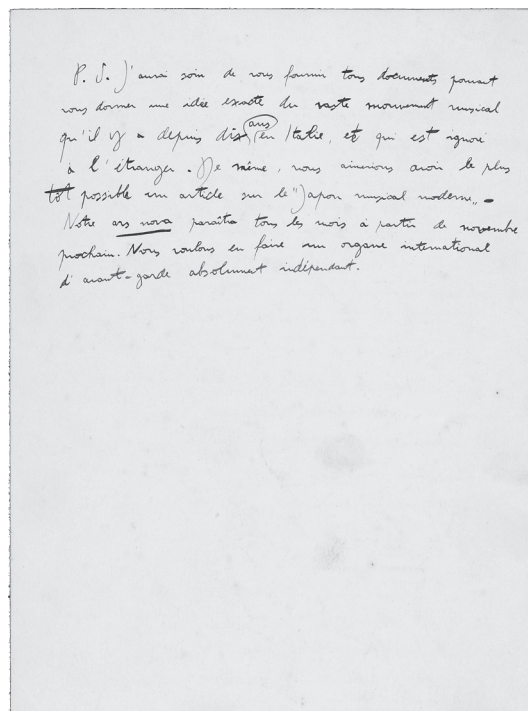 P. S. J'aurai soin de vous fournir tous documents pouvant
vous donner une idée exacte du vaste mouvement musical
qu'il y a depuis dix ans en Italie, et qui est ignoré
à l'étranger. De même, nous aimerions avoir le plus
tôt possible un article sur le "Japon musical moderne„ –
Notre ars nova paraîtra tous les mois à partir de novembre
prochain. Nous voulons en faire un organe international
d'avant-garde absolument indépendant.